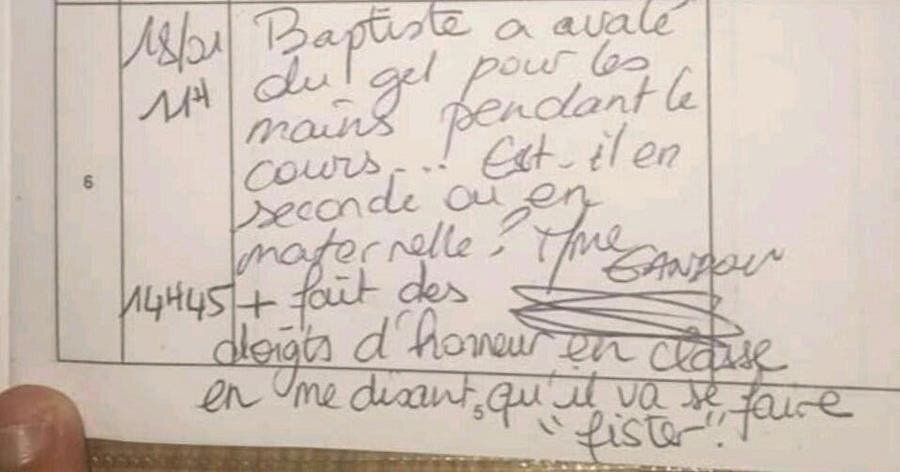 18/01 Baptiste a avalé
11H du gel pour les
mains pendant le
cours... Est-il en
6
seconde ou en
maternelle? Mme
GANDON
14H45 + fait des
doigts d'honneur en classe
en me disant qu'il va se faire
"fister".